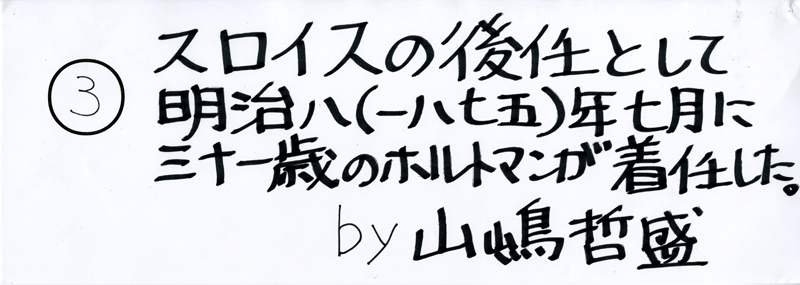 ③
スロイスの後任として
明治八(一八七五)年七月に
三十一歳のホルトマンが着任した。
by 山嶋哲盛